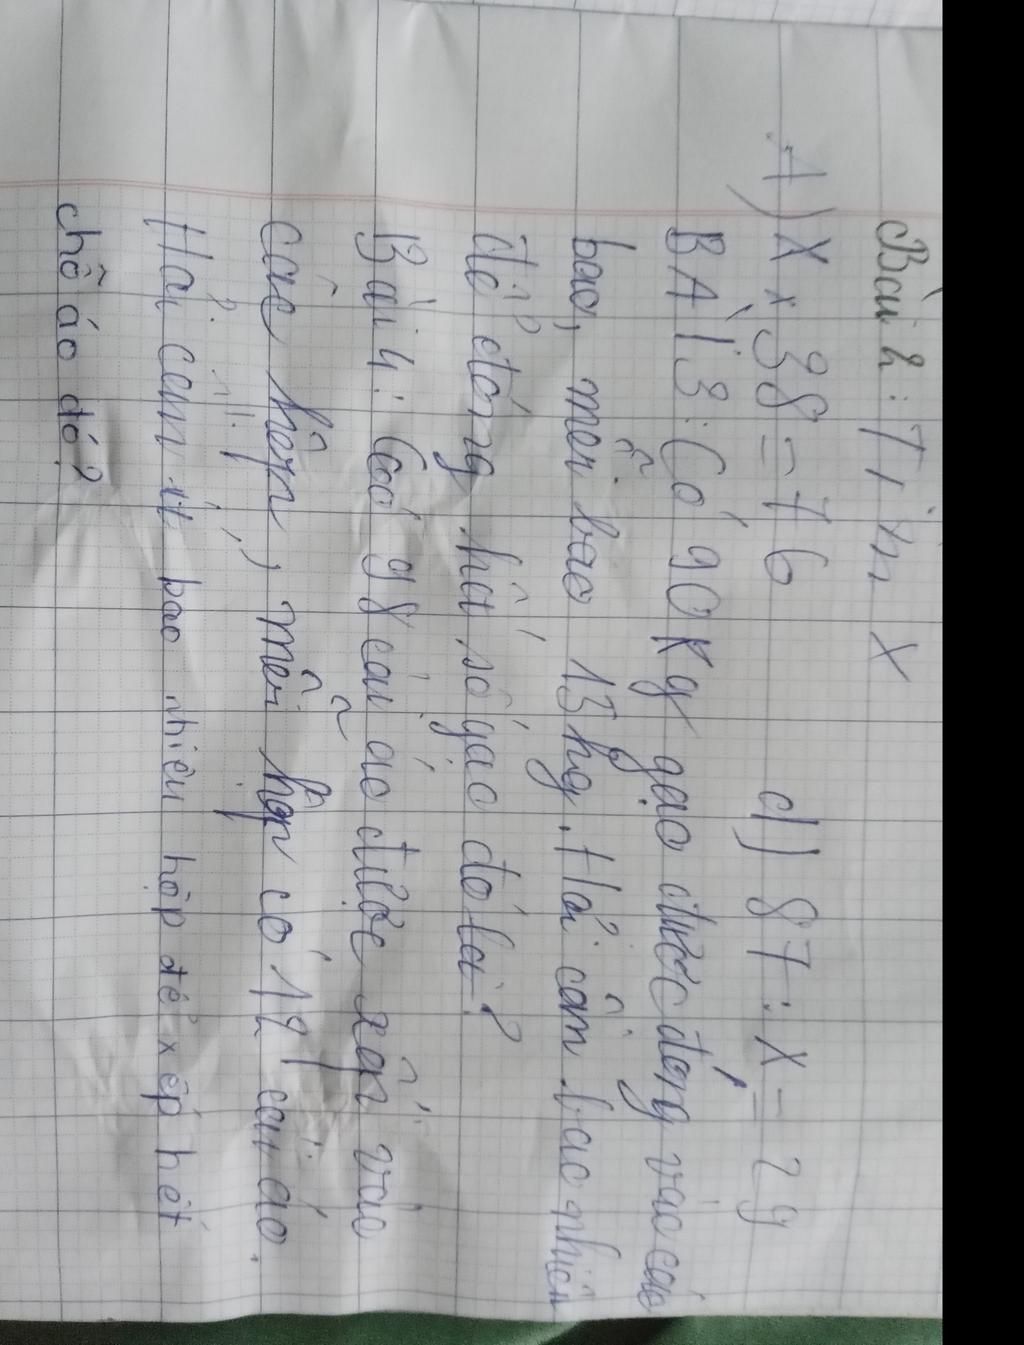 Bài 2: Tìm X
A) X x 38 = 76 d) 87 : X = 29
BÀI 3: Có 90 Kg gạo được đóng vào các
bao, mỗi bao 13 kg. Hỏi cần bao nhiên
để đóng hết số gạo đó lại?
Bài 4: Coó 98 cái áo được xếp vào
các hộp, mỗi hộp có 12 cái áo.
Hỏi cần ít bao nhiêu hộp để xếp hết
chỗ áo đó?